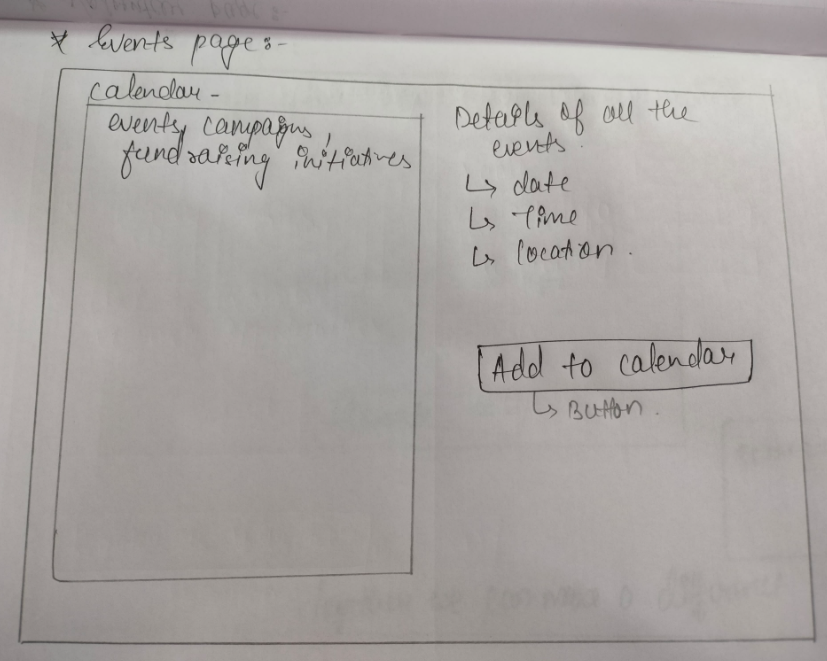 * Events page:-
Calendar -
events, campaigns,
fundraising initiatives
Details of all the
events.
↳ date
↳ Time
↳ location.
Add to calendar
↳ Button.